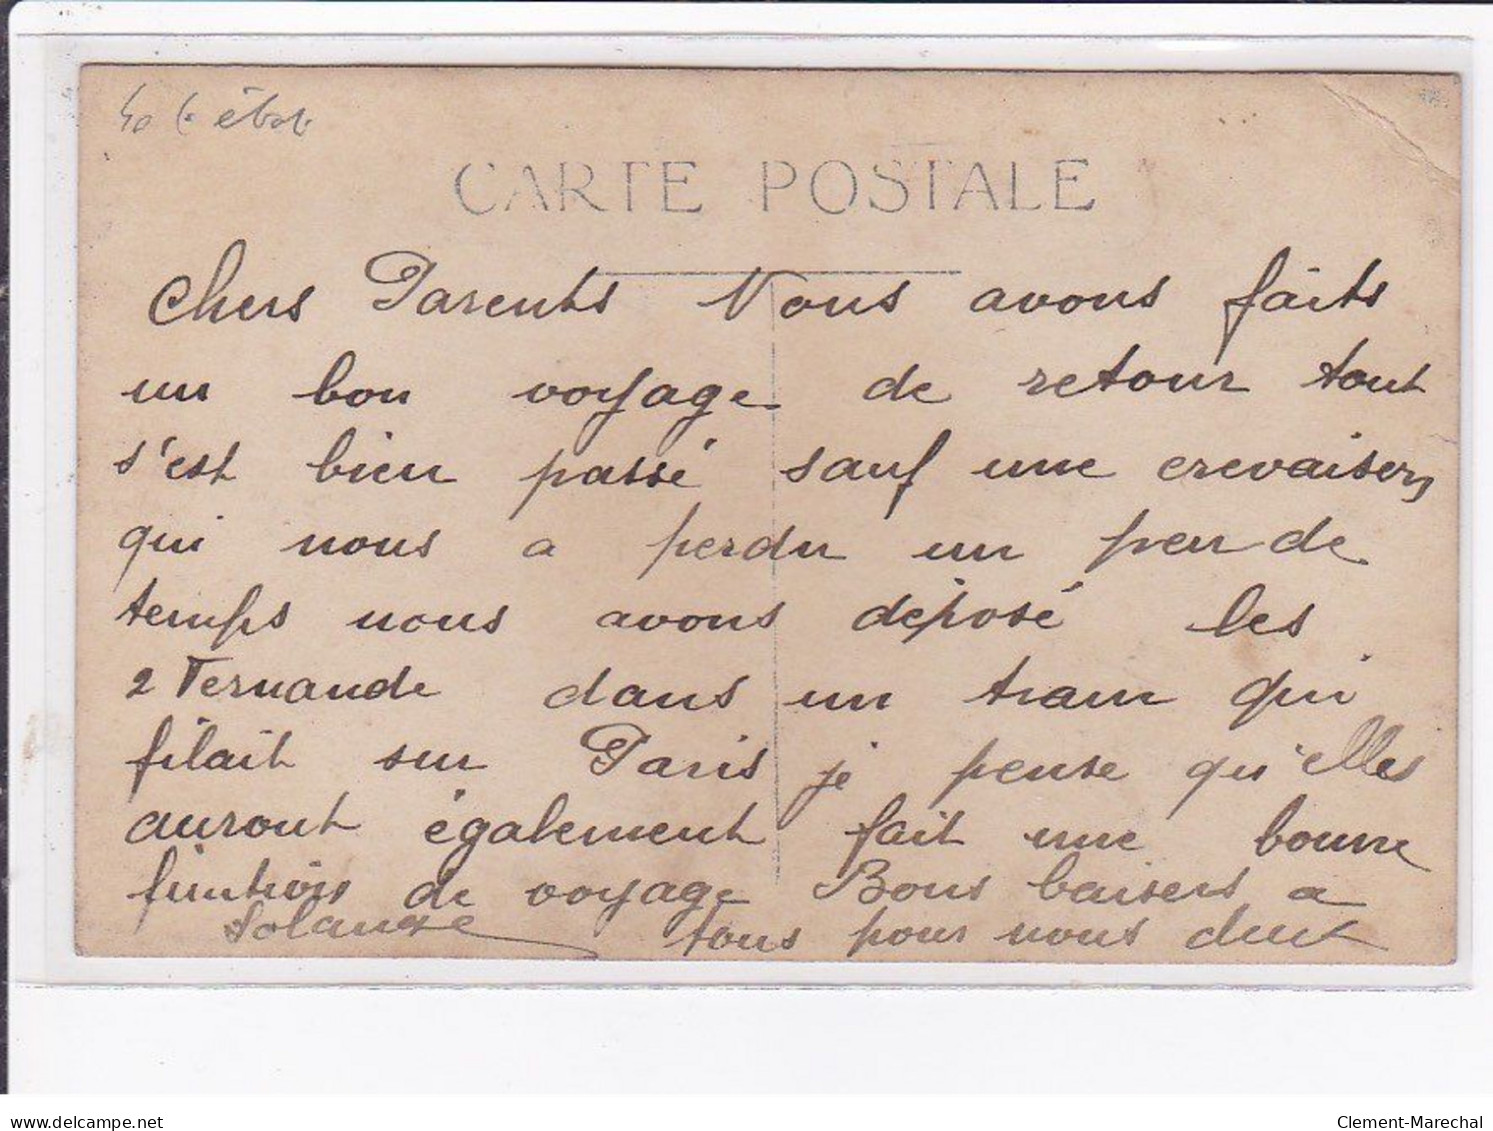 CARTE POSTALE
Chers Parents Nous avons faits
un bon voyage de retour tout
s'est bien passé sauf une crevaison
qui nous a perdu un peu de
temps nous avons déposé les
2 Fernande dans un tram qui
filait sur Paris je pense qu'elles
auront également fait une bonne
fin de voyage Bons baisers a
tous pour nous deux
Solange
delcampe.net
Clement-Marechal